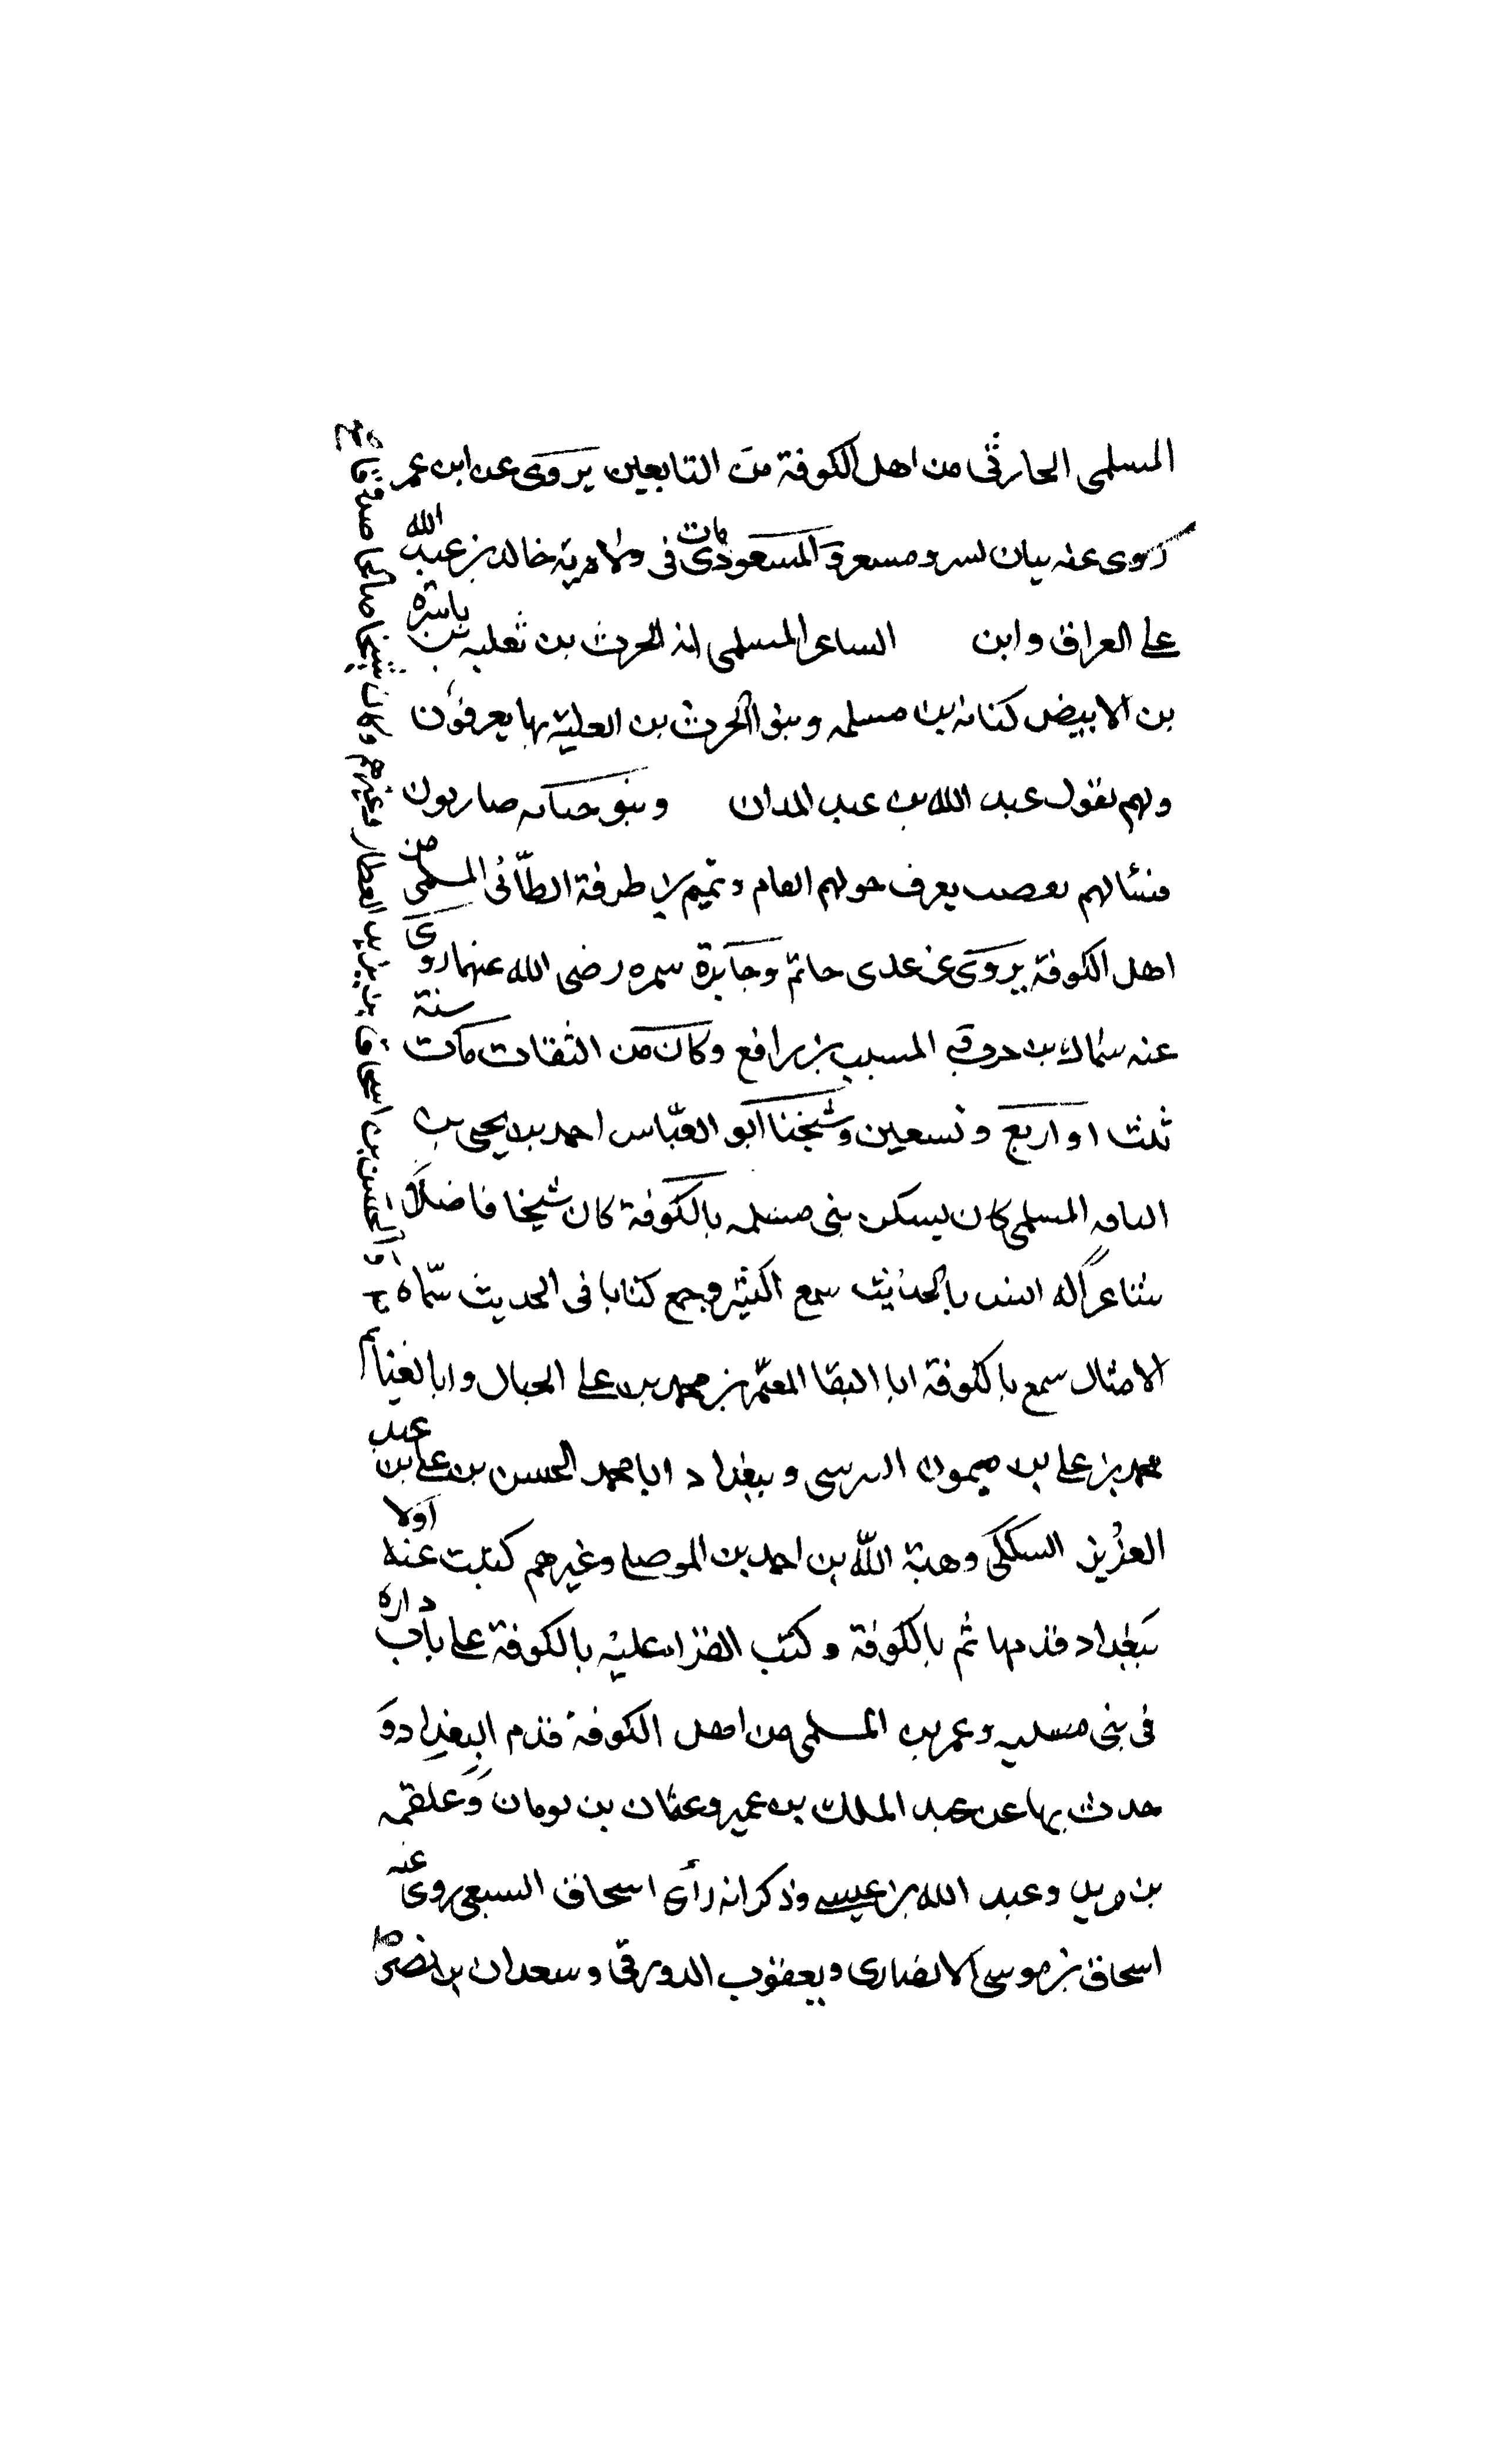 المسلمى الحارثى من اهل الكوفة من التابعين يروى عن ابن عمر
روى عنه بيان بن بشر ومسعر والمسعودى مات فى ولاية خالد بن عبد الله
على العراق وابن الساعر المسلمى انه الحرث بن ثعلبه بن ناشره
بن الابيض كنانه بن مسلمه وبنو الحرث بن العليه بها يعرفون
ولهم يقول عبد الله بن عبد المدان وبنو حبابه ضاربون
يعرف حولهم العام وتميم بن طرفة الطائى المسلمى من
اهل الكوفة يروى عن عدى حاتم وجابر سمره رضى الله عنهما روى
عنه سماك بن حرب المسيب بن رافع وكان من الثقات مات سنة
ثلث او اربع وتسعين وشيخنا ابو العباس احمد بن يحيى بن
الناقه المسلمى كان يسكن بنى مسلمه بالكوفة كان شيخا فاضلا
شاعرا له انس بالحديث سمع الكثير وجمع كتابا فى الحديث سماه
الامثال سمع بالكوفة ابا البقا المعمر بن محمد بن على الحبال وابا الغنايم
محمد بن على بن ميمون النرسى وببغداد ابا محمد الحسن بن على بن عبد
العزيز السككى وهبة الله بن احمد بن الموصلى وغيرهم كتبت عنه اولا
ببغداد قدمها ثم بالكوفة وكتب القزا عليه بالكوفة على باب داره
فى بنى مسليه وعمر بن المسلمى من اهل الكوفة قدم البغداد و
حدث بها عن عبد الملك بن عمير وعثمان بن نوهان وعلقمه
بن مرثد وعبد الله بن عيسى وذكر انه رأى اسحاق السبيعى روى عنه
اسحاق بن موسى الانصارى ويعقوب الدورقى وسعدان بن نصر
والحسن بن اسحاق بن يزيد العطار وغيرهم وكان شيخا صالحا صدوقا